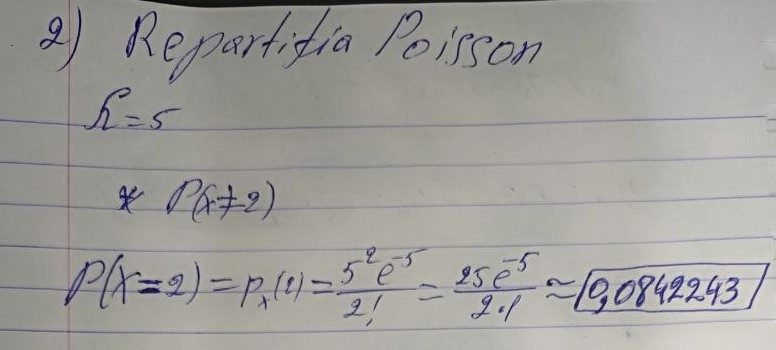 2) Repartiția Poisson
λ=5
* P(X≠2)
P(X=2) = pₓ(2) = 5² e⁻⁵ / 2! = 25 e⁻⁵ / 2·1 ≈ 0,0842243